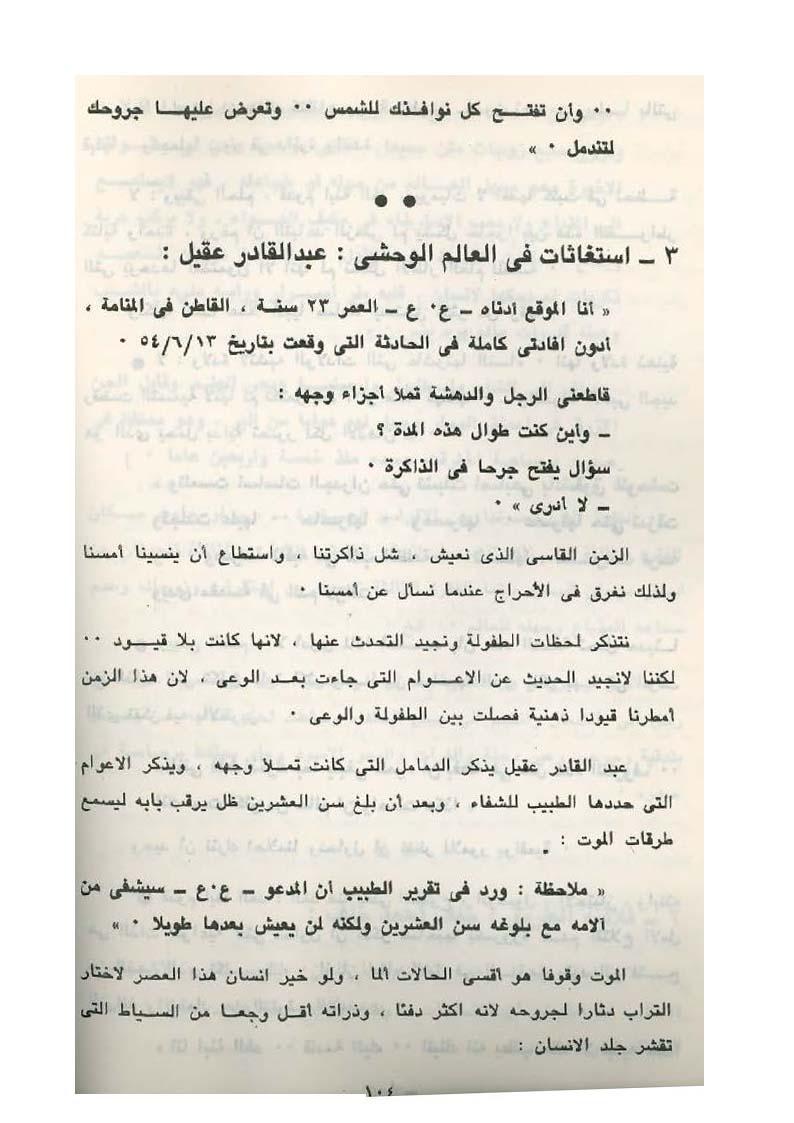 ٠٠ وأن تفتـــح كل نوافـذك للشمس ٠٠ وتعرض عليهـــا جروحك
لتندمل ٠ »
● ●
٣ ـ استغاثات فى العالم الوحشى : عبدالقادر عقيل :
« أنا الموقع أدناه ـ ع٠ ع ـ العمر ٢٣ سنـة ، القاطن فى المنامة ،
أدون افادتى كاملة فى الحادثة التى وقعت بتاريخ ٥٤/٦/١٣ ٠
قاطعنى الرجل والدهشة تملا أجزاء وجهه :
ـ وأين كنت طوال هذه المدة ؟
سؤال يفتح جرحا فى الذاكرة ٠
ـ لا أدرى » ٠
الزمن القاسى الذى نعيش ، شل ذاكرتنا ، واستطاع أن ينسينا أمسنا
ولذلك نغرق فى الأحراج عندما نسأل عن أمسنا ٠
نتذكر لحظات الطفولة ونجيد التحدث عنها ، لانها كانت بلا قيـــود ٠٠
لكننا لانجيد الحديث عن الاعـــوام التى جاءت بعـد الوعى ، لان هذا الزمن
أمطرنا قيودا ذهنية فصلت بين الطفولة والوعى ٠
عبد القادر عقيل يذكر الدمامل التى كانت تمـلأ وجهه ، ويذكر الاعوام
التى حددها الطبيب للشفاء ، وبعد أن بلغ سن العشرين ظل يرقب بابه ليسمع
طرقات الموت :
« ملاحظة : ورد فى تقرير الطبيب أن المدعو ـ ع٠ع ـ سيشفى من
آلامه مع بلوغه سن العشرين ولكنه لن يعيش بعدها طويلا ٠ »
الموت وقوفا هو أقسى الحالات ألما ، ولو خير انسان هذا العصر لاختار
التراب دثارا لجروحه لانه اكثر دفئا ، وذراته أقـل وجعـا من السـياط التى
تقشر جلد الانسان :
١٠٤